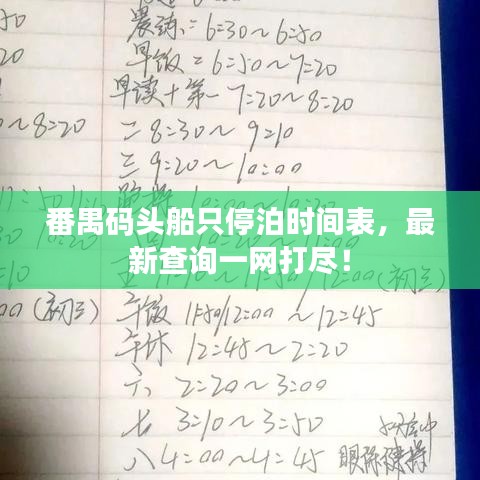 晨练：6:30～6:50
早饭：6:50～7:20
早读+第一 7:20～8:20
～8:20
二 8:30～9:10
三 9:20～10:00
番禺码头船只停泊时间表，最
新查询一网打尽！
(初三)
午饭 11:50/12:00～12:45
午休 12:45～2:20
六、2:20～3:00
七 3:10～3:50
八 4:00～4:45
眼保健操